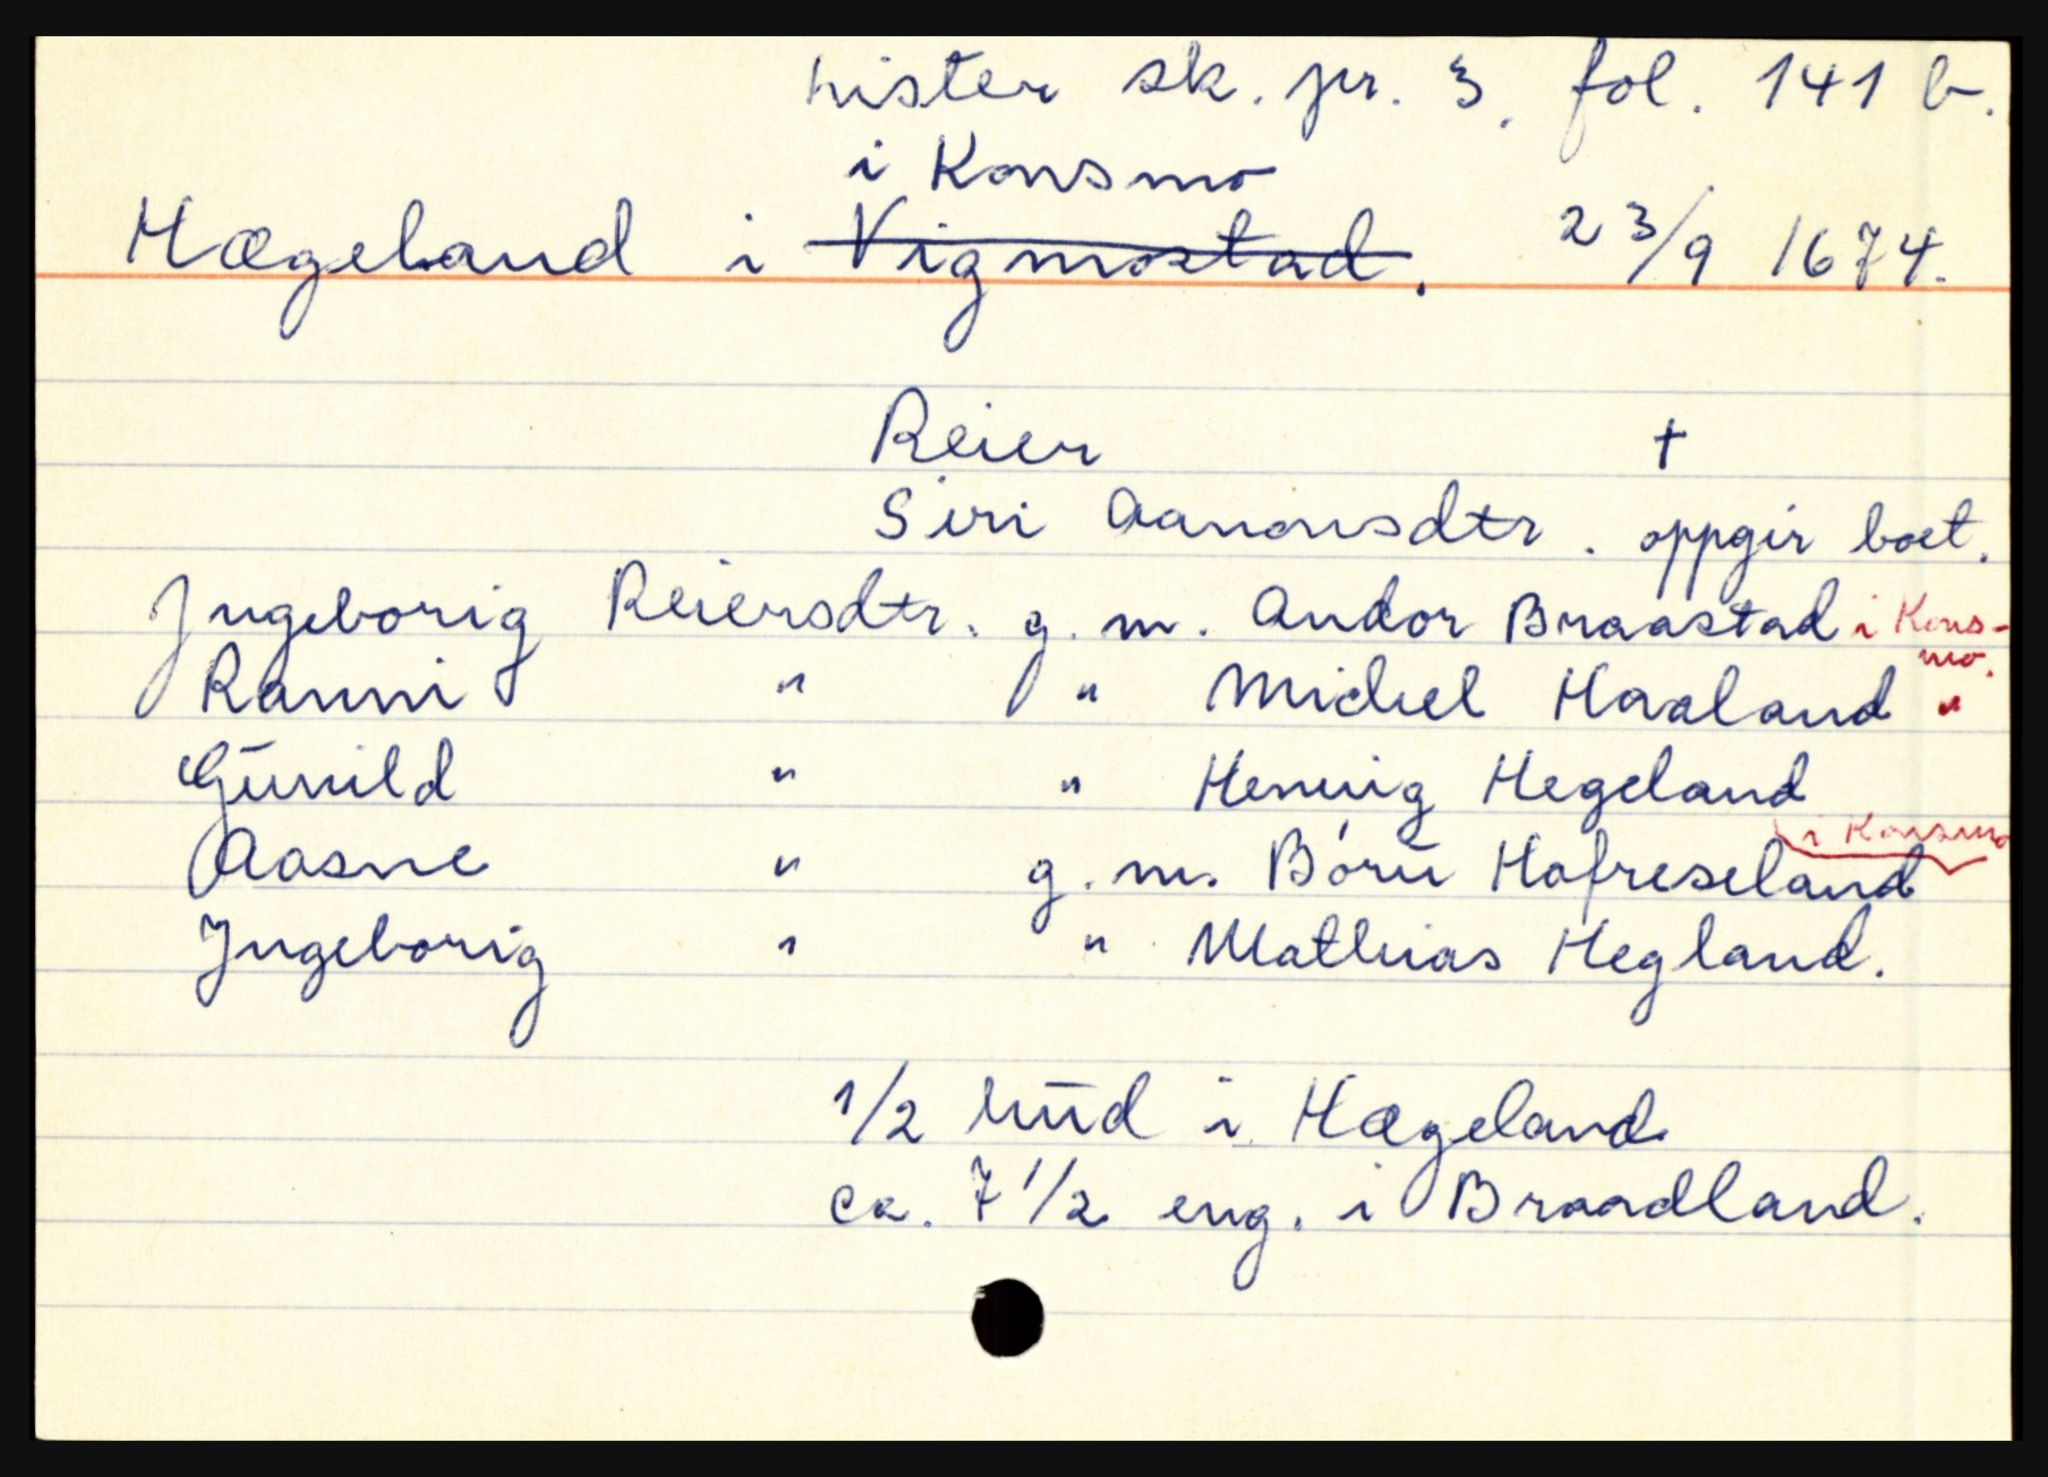 Lister sk. pr. 3. fol. 141 b.
i Konsmo
Hægeland i Vigmostad. 23/9 1674.
Reier †
Siri Aanonsdtr. oppgir boet.
Ingeborig Reiersdtr. g. m. Andor Braastad i Kons-
mo.
Ranni " " Michel Haaland "
Gunild " " Hennig Hegeland
i Konsmo
Aasne " g. m. Børu Hafreseland
Ingeborig " " Mathias Hegland.
1/2 hud i Hægeland
ca. 7 1/2 eng. i Braadland.